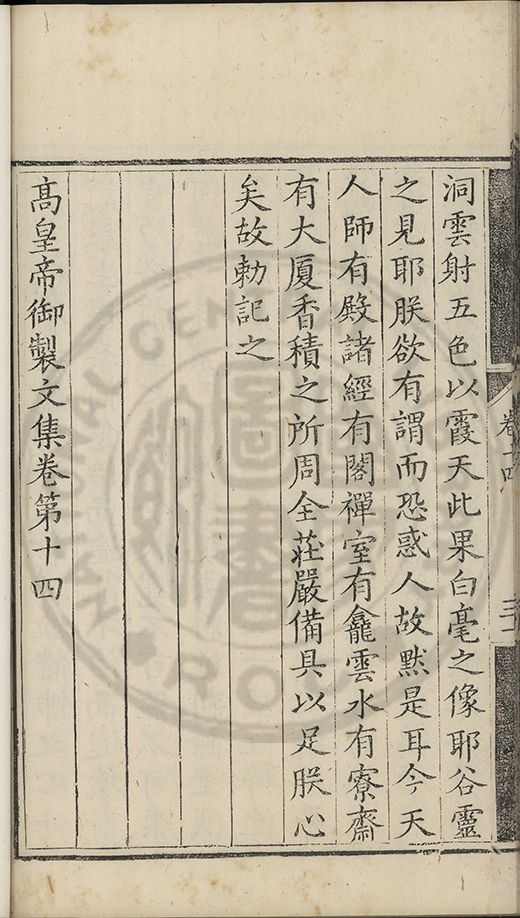 洞雲射五色以霞天此果白毫之像耶谷靈
之見耶朕欲有謂而恐惑人故默是耳今天
人師有殿諸經有閣禪室有龕雲水有寮齋
有大厦香積之所周全莊嚴備具以足朕心
矣故勅記之
高皇帝御製文集卷第十四
卷十四